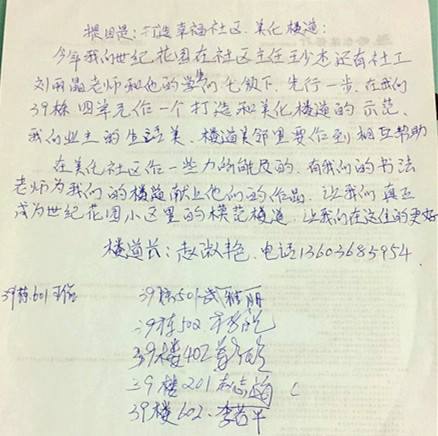 提目是:打造幸福社区、美化楼道:
今年我们世纪花园在社区主任王少杰还有社工
刘丽晶老师和他的学们七领下.先行一步.在我们
39栋四单元作一个打造和美化楼道的示范、
我们业主的生活美、楼道美邻里要作到相互帮助
在美化社区作一些力所能及的、有我们的书法
老师为我们的楼道献上他们的作品、让我们真正
成为世纪花园小区里的模范楼道、让我们在这住的更好
楼道长:赵淑艳、电话13603685954
39栋601王
39栋501武雅丽
39栋502
39楼402
39楼201
39楼602、李若平